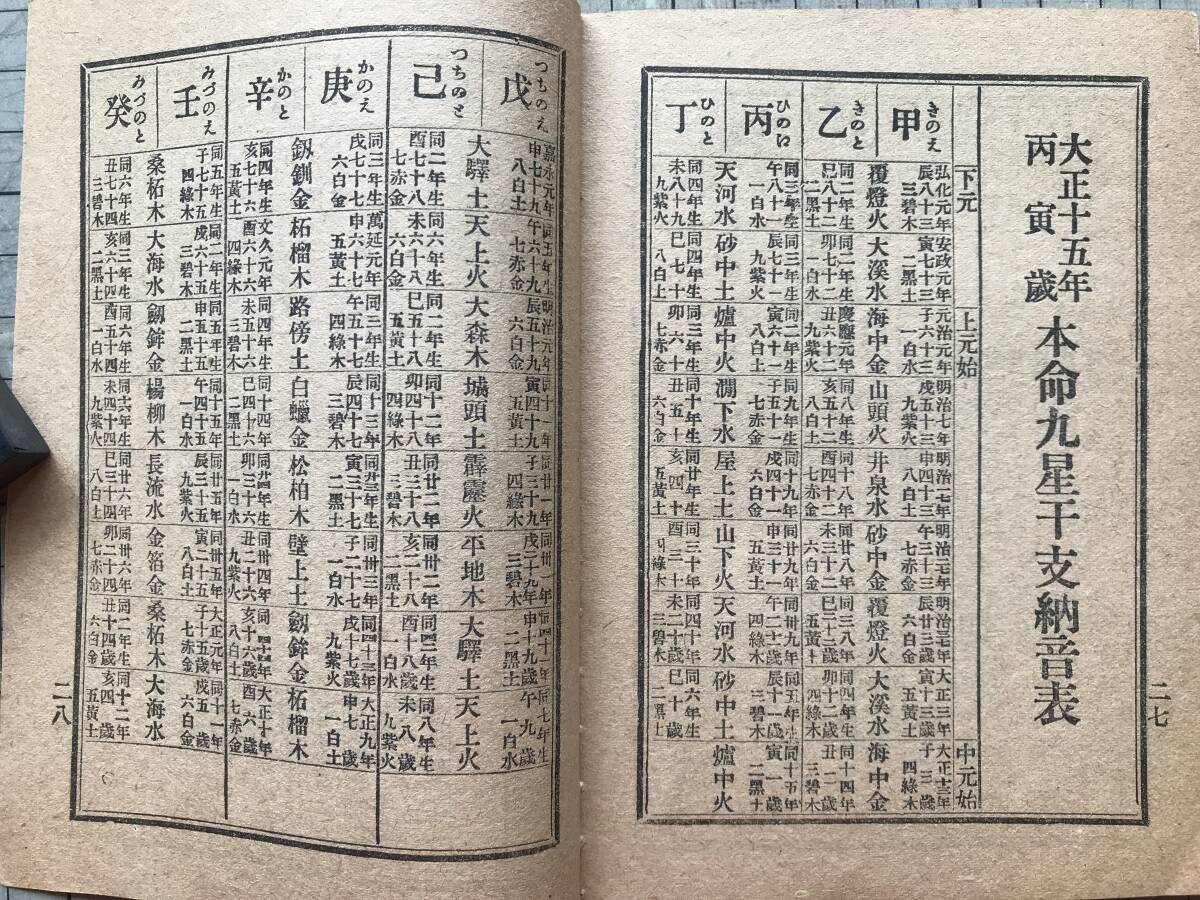 大正十五年
丙寅歳
本命九星干支納音表
二七
下元 上元始 中元始
きのえ
甲
弘化元年 安政元年 元治元年 明治七年 明治十七年 明治廿七年 明治卅七年 大正三年 大正十三年
辰八十三 寅七十三 子六十三 戌五十三 申四十三 午三十三 辰廿三歳 寅十三歳 子三歳
三碧木 二黑土 一白水 九紫火 八白土 七赤金 六白金 五黃土 四綠木
覆燈火 大溪水 海中金 山頭火 井泉水 砂中金 覆燈火 大溪水 海中金
きのと
乙
同二年生 同二年生 慶應元年 同八年生 同十八年 同廿八年 同三八年 同四年生 同十四年
巳八十二 卯七十二 丑六十二 亥五十二 酉四十二 未三十二 巳二十二歳 卯十二歳 丑二歳
二黑土 一白水 九紫火 八白土 七赤金 六白金 五黃土 四綠木 三碧木
ひのえ
丙
同三年生 同三年生 同二年生 同九年生 同十九年 同廿九年 同卅九年 同五年生 同十五年
午八十一 辰七十一 寅六十一 子五十一 戌四十一 申三十一 午二十一歳 辰十一歳 寅一歳
一白水 九紫火 八白土 七赤金 六白金 五黃土 四綠木 三碧木 二黑土
天河水 砂中土 爐中火 澗下水 屋上土 山下火 天河水 砂中土 爐中火
ひのと
丁
同四年生 同四年生 同三年生 同十年生 同廿年生 同三十年 同四十年 同六年生
未八十 巳七十 卯六十 丑五十 亥四十 酉三十 未二十歳 巳十歳
九紫火 八白土 七赤金 六白金 五黃土 四綠木 三碧木 二黑土
つちのえ
戊
嘉永元年 同五年生 明治元年 同十一年 同廿一年 同卅一年 同四十一年 同七年生
申七十九 午六十九 辰五十九 寅四十九 子三十九 戌二十九 申十九歳 午九歳
八白土 七赤金 六白金 五黃土 四綠木 三碧木 二黑土 一白水
大驛土 天上火 大森木 城頭土 霹靂火 平地木 大驛土 天上火
つちのと
己
同二年生 同六年生 同二年生 同十二年 同廿二年 同卅二年 同四二年 同八年生
酉七十八 未六十八 巳五十八 卯四十八 丑三十八 亥二十八 酉十八歳 未八歳
七赤金 六白金 五黃土 四綠木 三碧木 二黑土 一白水 九紫火
かのえ
庚
同三年生 萬延元年 同三年生 同十三年 同廿三年生 同卅三年 同四十三年 大正九年
戌七十七 申六十七 午五十七 辰四十七 寅三十七 子二十七 戌十七歳 申七歳
六白金 五黃土 四綠木 三碧木 二黑土 一白水 九紫火 八白土
釼釧金 柘榴木 路傍土 白蠟金 松柏木 壁上土 釼鉾金 柘榴木
かのと
辛
同四年生 文久元年 同四年生 同十四年 同廿四年生 同卅四年 同四十四年 大正十年
亥七十六 酉六十六 未五十六 巳四十六 卯三十六 丑二十六 亥十六歳 酉六歳
五黃土 四綠木 三碧木 二黑土 一白水 九紫火 八白土 七赤金
みづのえ
壬
同五年生 同二年生 同五年生 同十五年 同廿五年 同卅五年 大正元年 同十一年
子七十五 戌六十五 申五十五 午四十五 辰三十五 寅二十五 子十五歳 戌五歳
四綠木 三碧木 二黑土 一白水 九紫火 八白土 七赤金 六白金
桑柘木 大海水 劔鉾金 楊柳木 長流水 金箔金 桑柘木 大海水
みづのと
癸
同六年生 同三年生 同六年生 同十六年生 同廿六年 同卅六年 同二年生 同十二年
丑七十四 亥六十四 酉五十四 未四十四 巳三十四 卯二十四 丑十四歳 亥四歳
三碧木 二黑土 一白水 九紫火 八白土 七赤金 六白金 五黃土
二八